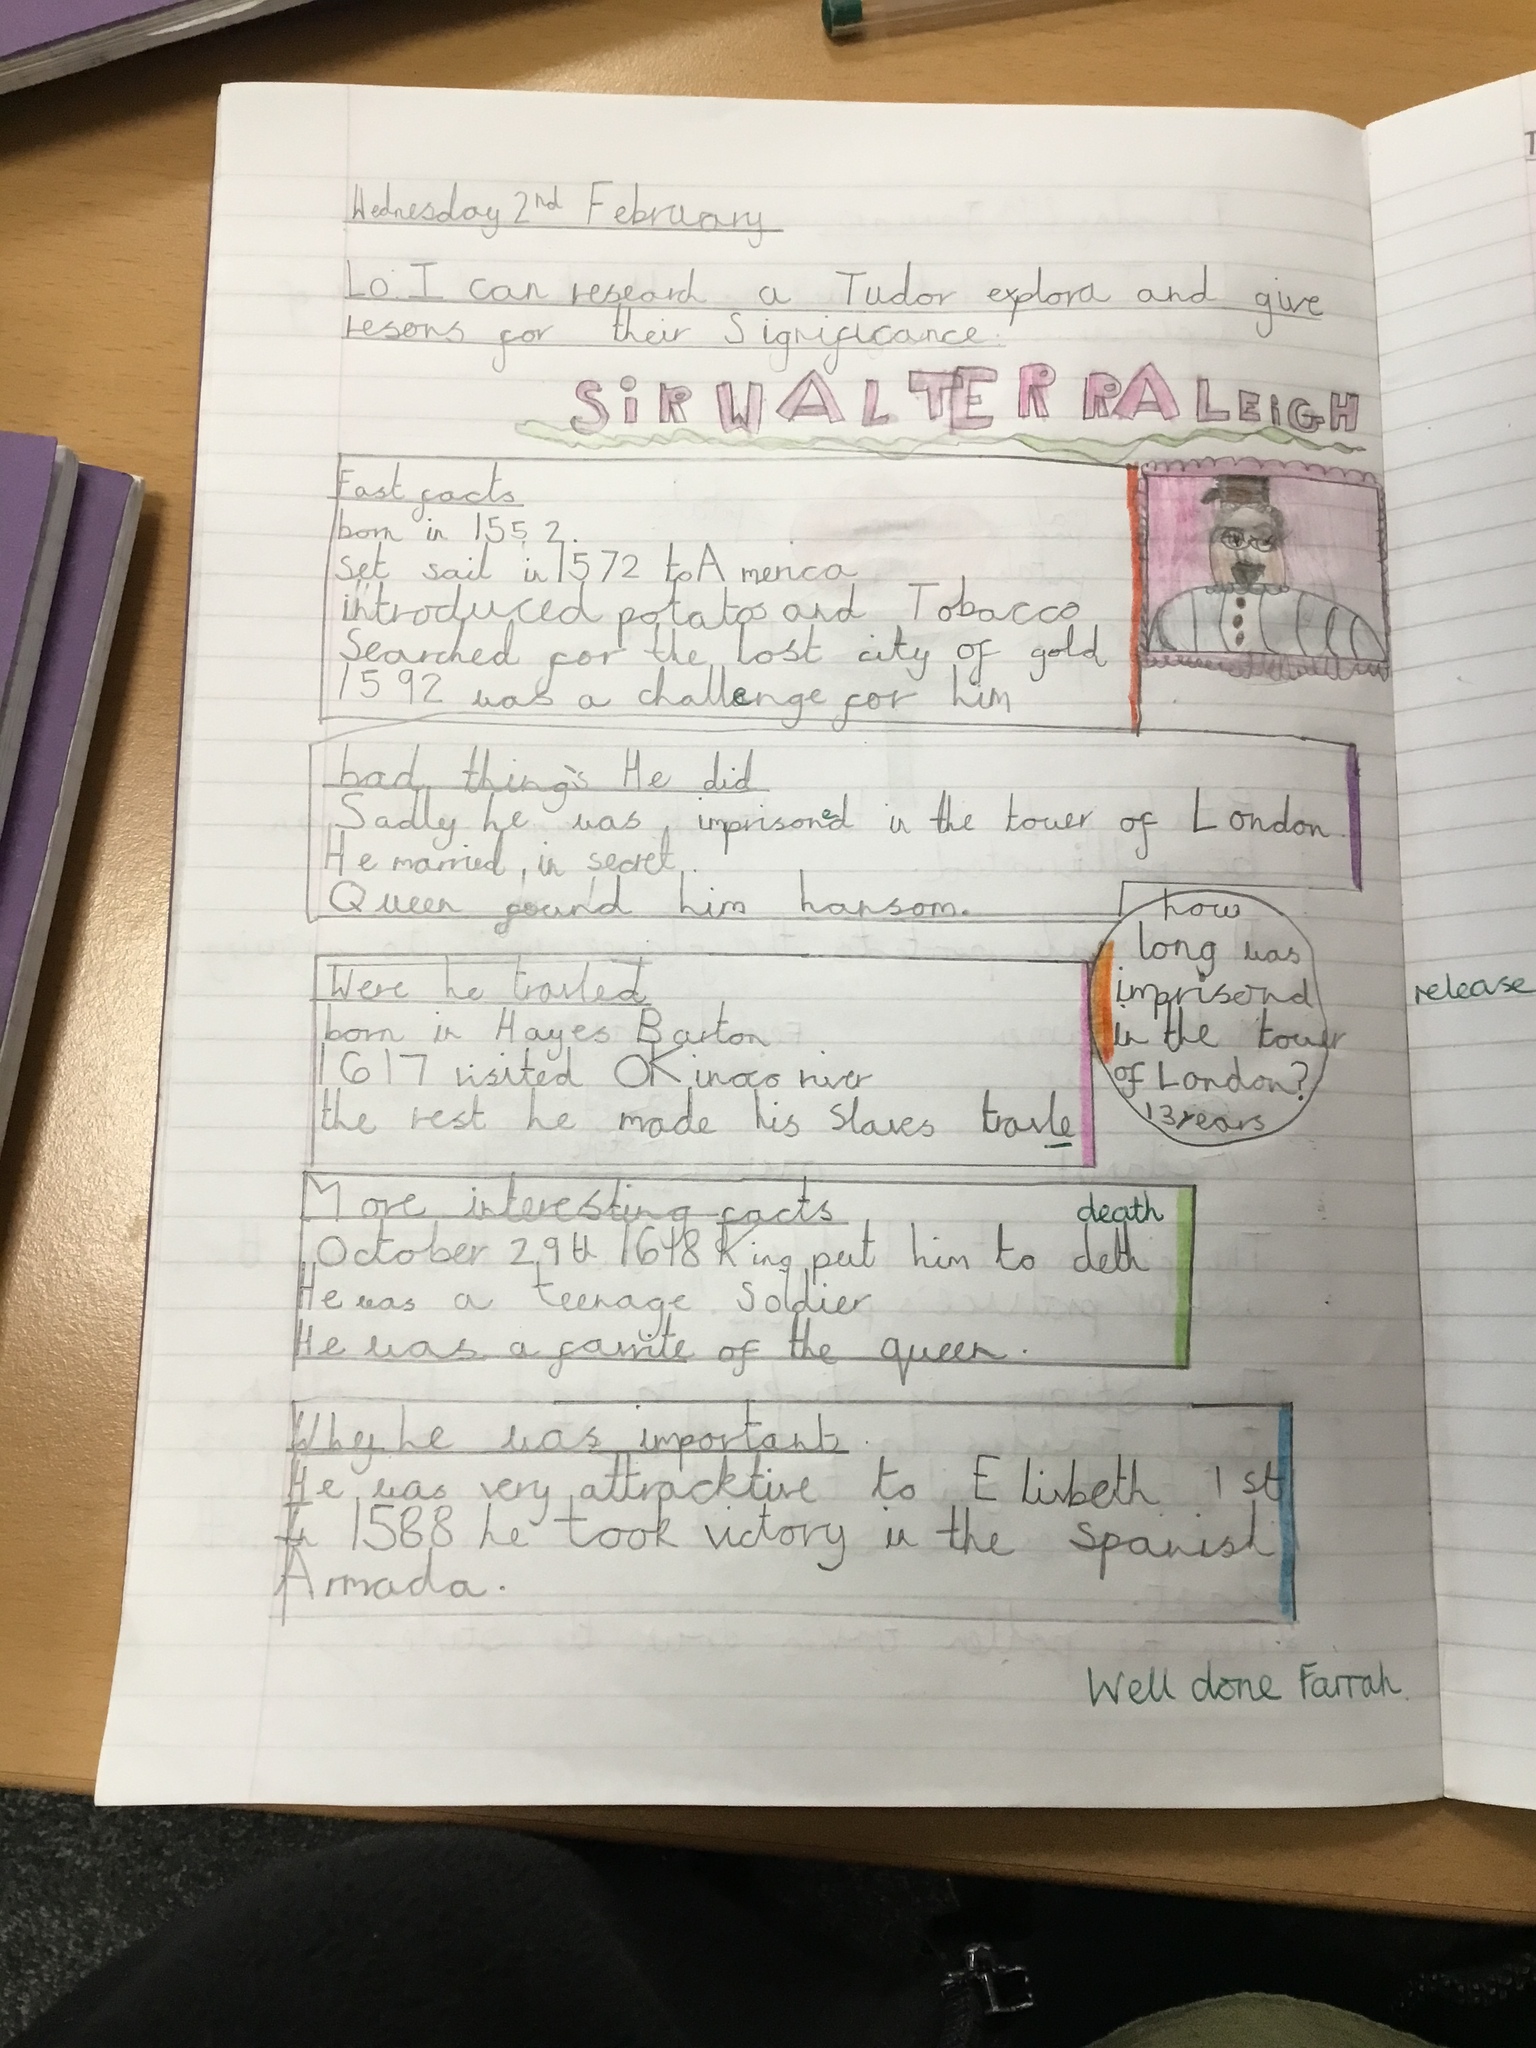 Wednesday 2nd February
Lo. I can research a Tudor explora and give
resons for their Significance.
SiR WALTER RALEiGH
Fast facts
born in 1552.
set sail in 1572 to America
introduced potatos and Tobacco
Searched for the lost city of gold
1592 was a challenge for him
bad things He did
Sadly he was imprisoned in the tower of London
He married in secret.
Queen found him hansom.
how
long was
imprisond
in the tower
of London?
13 years
release
Were he travled
born in Hayes Barton
1617 visited OKinoco river
the rest he made his slaves travle
More interesting facts
death
October 29th King put him to deth
He was a teenage Soldier
He was a favrite of the queen.
Why he was important
He was very attracktive to Elisbeth 1st
In 1588 he took victory in the Spanish
Armada.
Well done Farrah.